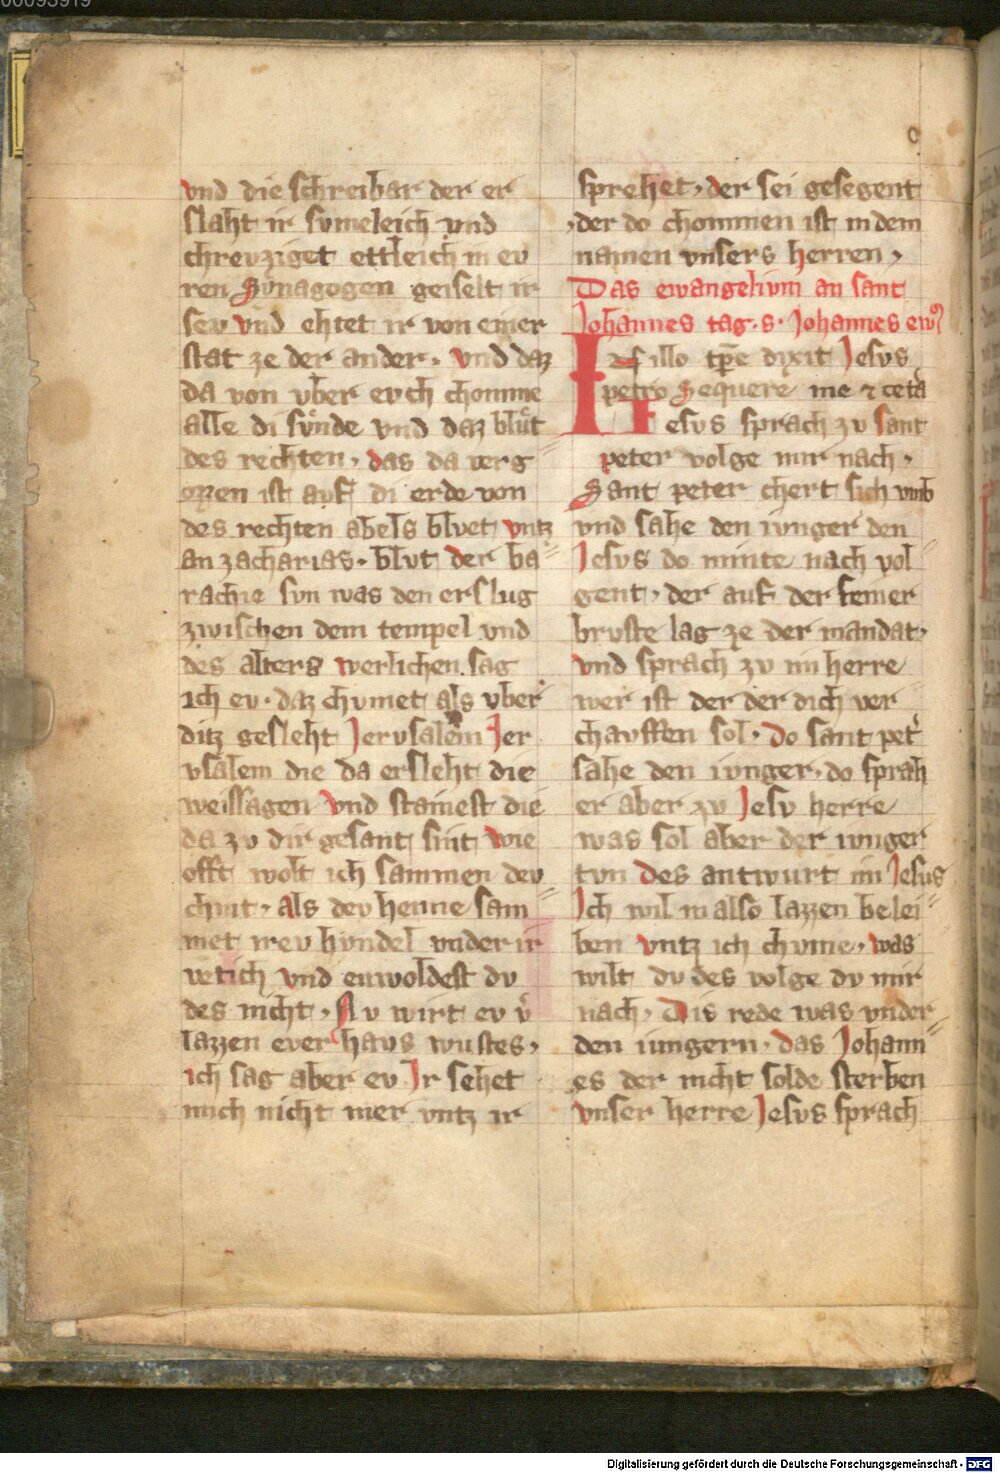 und die schreibar der er
slaht ir sumeleich und
chreuziget ettleich in eu
ren Synagogen geiselt ir
seu und ehtet ir von einer
stat ze der ander. und daz
da von uber euch chomme
alle di sünde und daz blůt
des rechten. das da verg
ozzen ist auf di erde von
des rechten abels bluet untz
an zacharias. blut der ba
rachie sun was den erslug
zwischen dem tempel und
des alters werlichen sag
ich eu. daz chumet als uber
ditz gesleht Jerusalem Jer
usalem die da ersleht die
weissagen und stainest die
da zu dir gesant sint wie
offt wolt ich sammen deu
chint. als deu henne sam
met ireu hundel under ir
vetich und enwoldest du
des nicht. Nu wirt eu v̓
lazzen ever haus wustes.
ich sag aber eu Ir sehet
mich nicht mer untz ir
sprehet. der sei gesegent
der do chommen ist in dem
namen unsers herren.
Das ewangelium an sant
Johannes tag. s. Johannes ew᷒
In illo tp̄e dixit Jesus
petro Sequere me ⁊ cetā
Jesus sprach zu sant
peter volge mir nach.
Sant peter chert sich umb
und sahe den iunger den
Jesus do minte nach vol
gent. der auf der seiner
bruste lag ze der mandat.
und sprach zu im herre
wer ist der der dich ver
chauffen sol. Do sant pet̓
sahe den iunger. do sprah
er aber zu Jesu herre
was sol aber der iunger
tun Des antwurt im Jesus
Ich wil in also lazzen belei
ben untz ich chume. was
wilt du des volge du mir
nach. Dis rede was under
den iungern. das Johann
es der nicht solde sterben
unser herre Jesus sprach
Digitalisierung gefördert durch die Deutsche Forschungsgemeinschaft - DFG